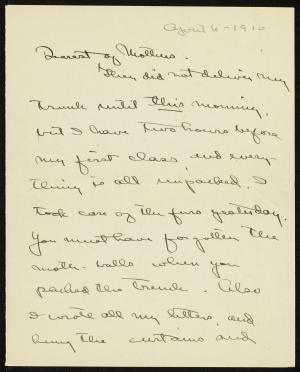 April 6-1910
Dearest of Mothers.
They did not deliver my
trunk until this morning,
but I have two hours before
my first class, and every-
thing is all unpacked. I
took care of the furs yesterday.
You must have forgotten the
moth-balls when you
packed the trunk. Also
I wrote all my letters, and
hung the curtains and